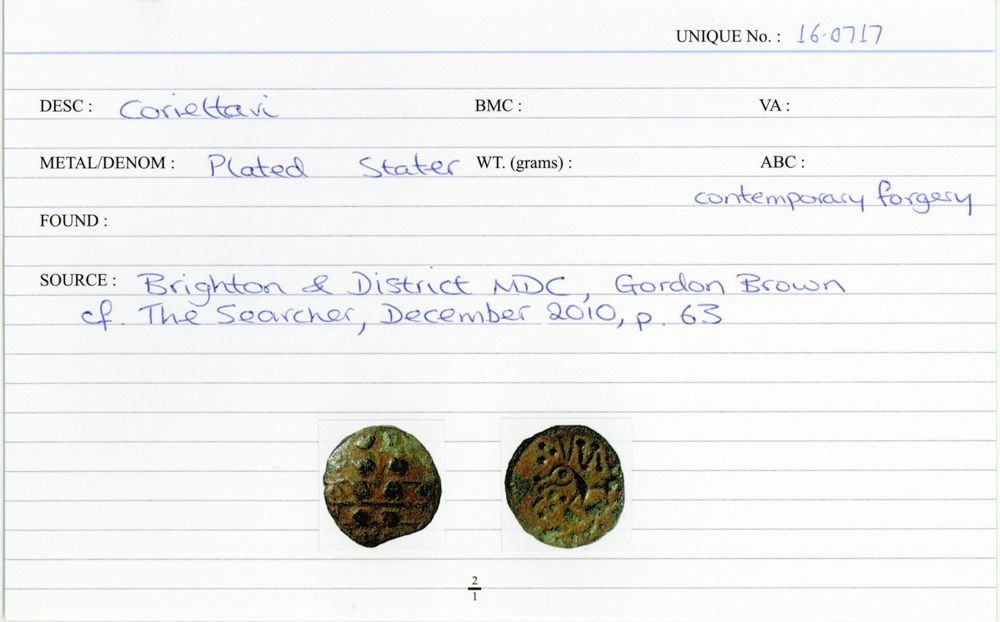 UNIQUE No. : 16-0717
DESC : Corieltavi BMC : VA :
METAL/DENOM : Plated Stater WT. (grams) : ABC :
contemporary forgery
FOUND :
SOURCE : Brighton & District MDC, Gordon Brown
cf. The Searcher, December 2010, p. 63
2
1